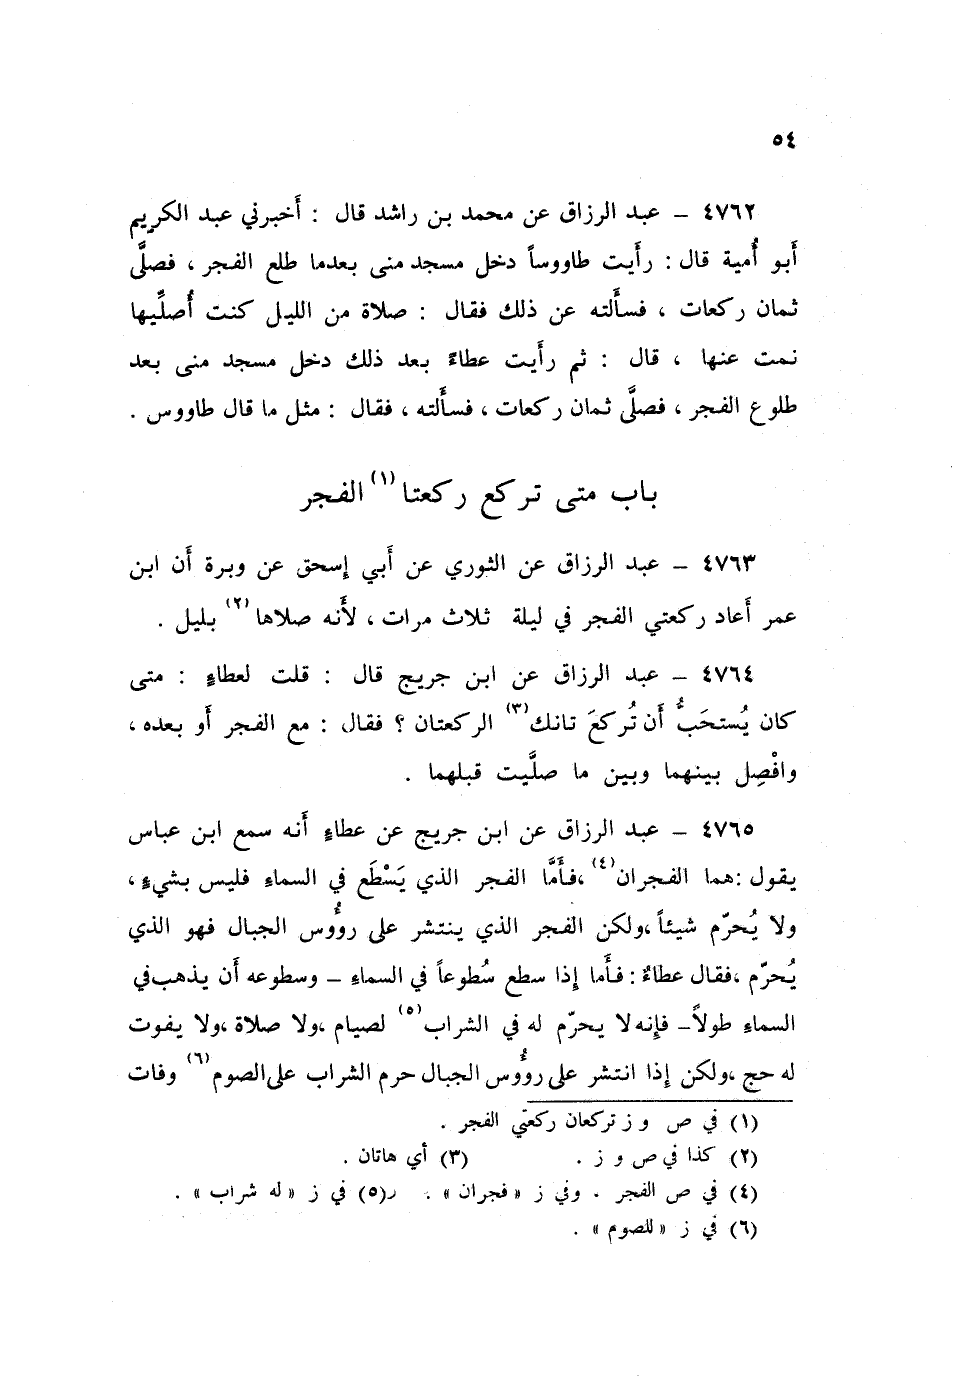 ٥٤
٤٧٦٢ – عبد الرزاق عن محمد بن راشد قال : أخبرني عبد الكريم
أبو أُمية قال : رأَيت طاووساً دخل مسجد منى بعدما طلع الفجر ، فصلَّى
ثمان ركعات ، فسأَلته عن ذلك فقال : صلاة من الليل كنت أُصلِّيها
نمت عنها ، قال : ثم رأَيت عطاءً بعد ذلك دخل مسجد منى بعد
طلوع الفجر ، فصلَّى ثمان ركعات ، فسأَلته ، فقال : مثل ما قال طاووس .
باب متى تركع ركعتا (١) الفجر
٤٧٦٣ – عبد الرزاق عن الثوري عن أَبي إسحق عن وبرة أَن ابن
عمر أَعاد ركعتي الفجر في ليلة ثلاث مرات ، لأَنه صلاها (٢) بليل .
٤٧٦٤ – عبد الرزاق عن ابن جريج قال : قلت لعطاءٍ : متى
كان يُستحَبُّ أَن تُركعَ تانك (٣) الركعتان ؟ فقال : مع الفجر أَو بعده ،
وافْصِل بينهما وبين ما صلَّيت قبلهما .
٤٧٦٥ – عبد الرزاق عن ابن جريج عن عطاءٍ أَنه سمع ابن عباس
يقول : هما الفجران (٤) ، فأَمَّا الفجر الذي يَسْطَع في السماءِ فليس بشيءٍ ،
ولا يُحرّم شيئاً ، ولكن الفجر الذي ينتشر على رؤُوس الجبال فهو الذي
يُحرّم ، فقال عطاءٌ : فأَما إذا سطع سُطوعاً في السماءِ – وسطوعه أَن يذهب في
السماءِ طولاً – فإنه لا يحرّم له في الشراب (٥) لصيام ، ولا صلاة ، ولا يفوت
له حج ، ولكن إذا انتشر على رؤُوس الجبال حرم الشراب على الصوم (٦) وفات
(١) في ص و ز تركعان ركعتي الفجر .
(٢) كذا في ص و ز . (٣) أي هاتان .
(٤) في ص الفجر . وفي ز « فجران » . (٥) في ز « له شراب » .
(٦) في ز « للصوم » .